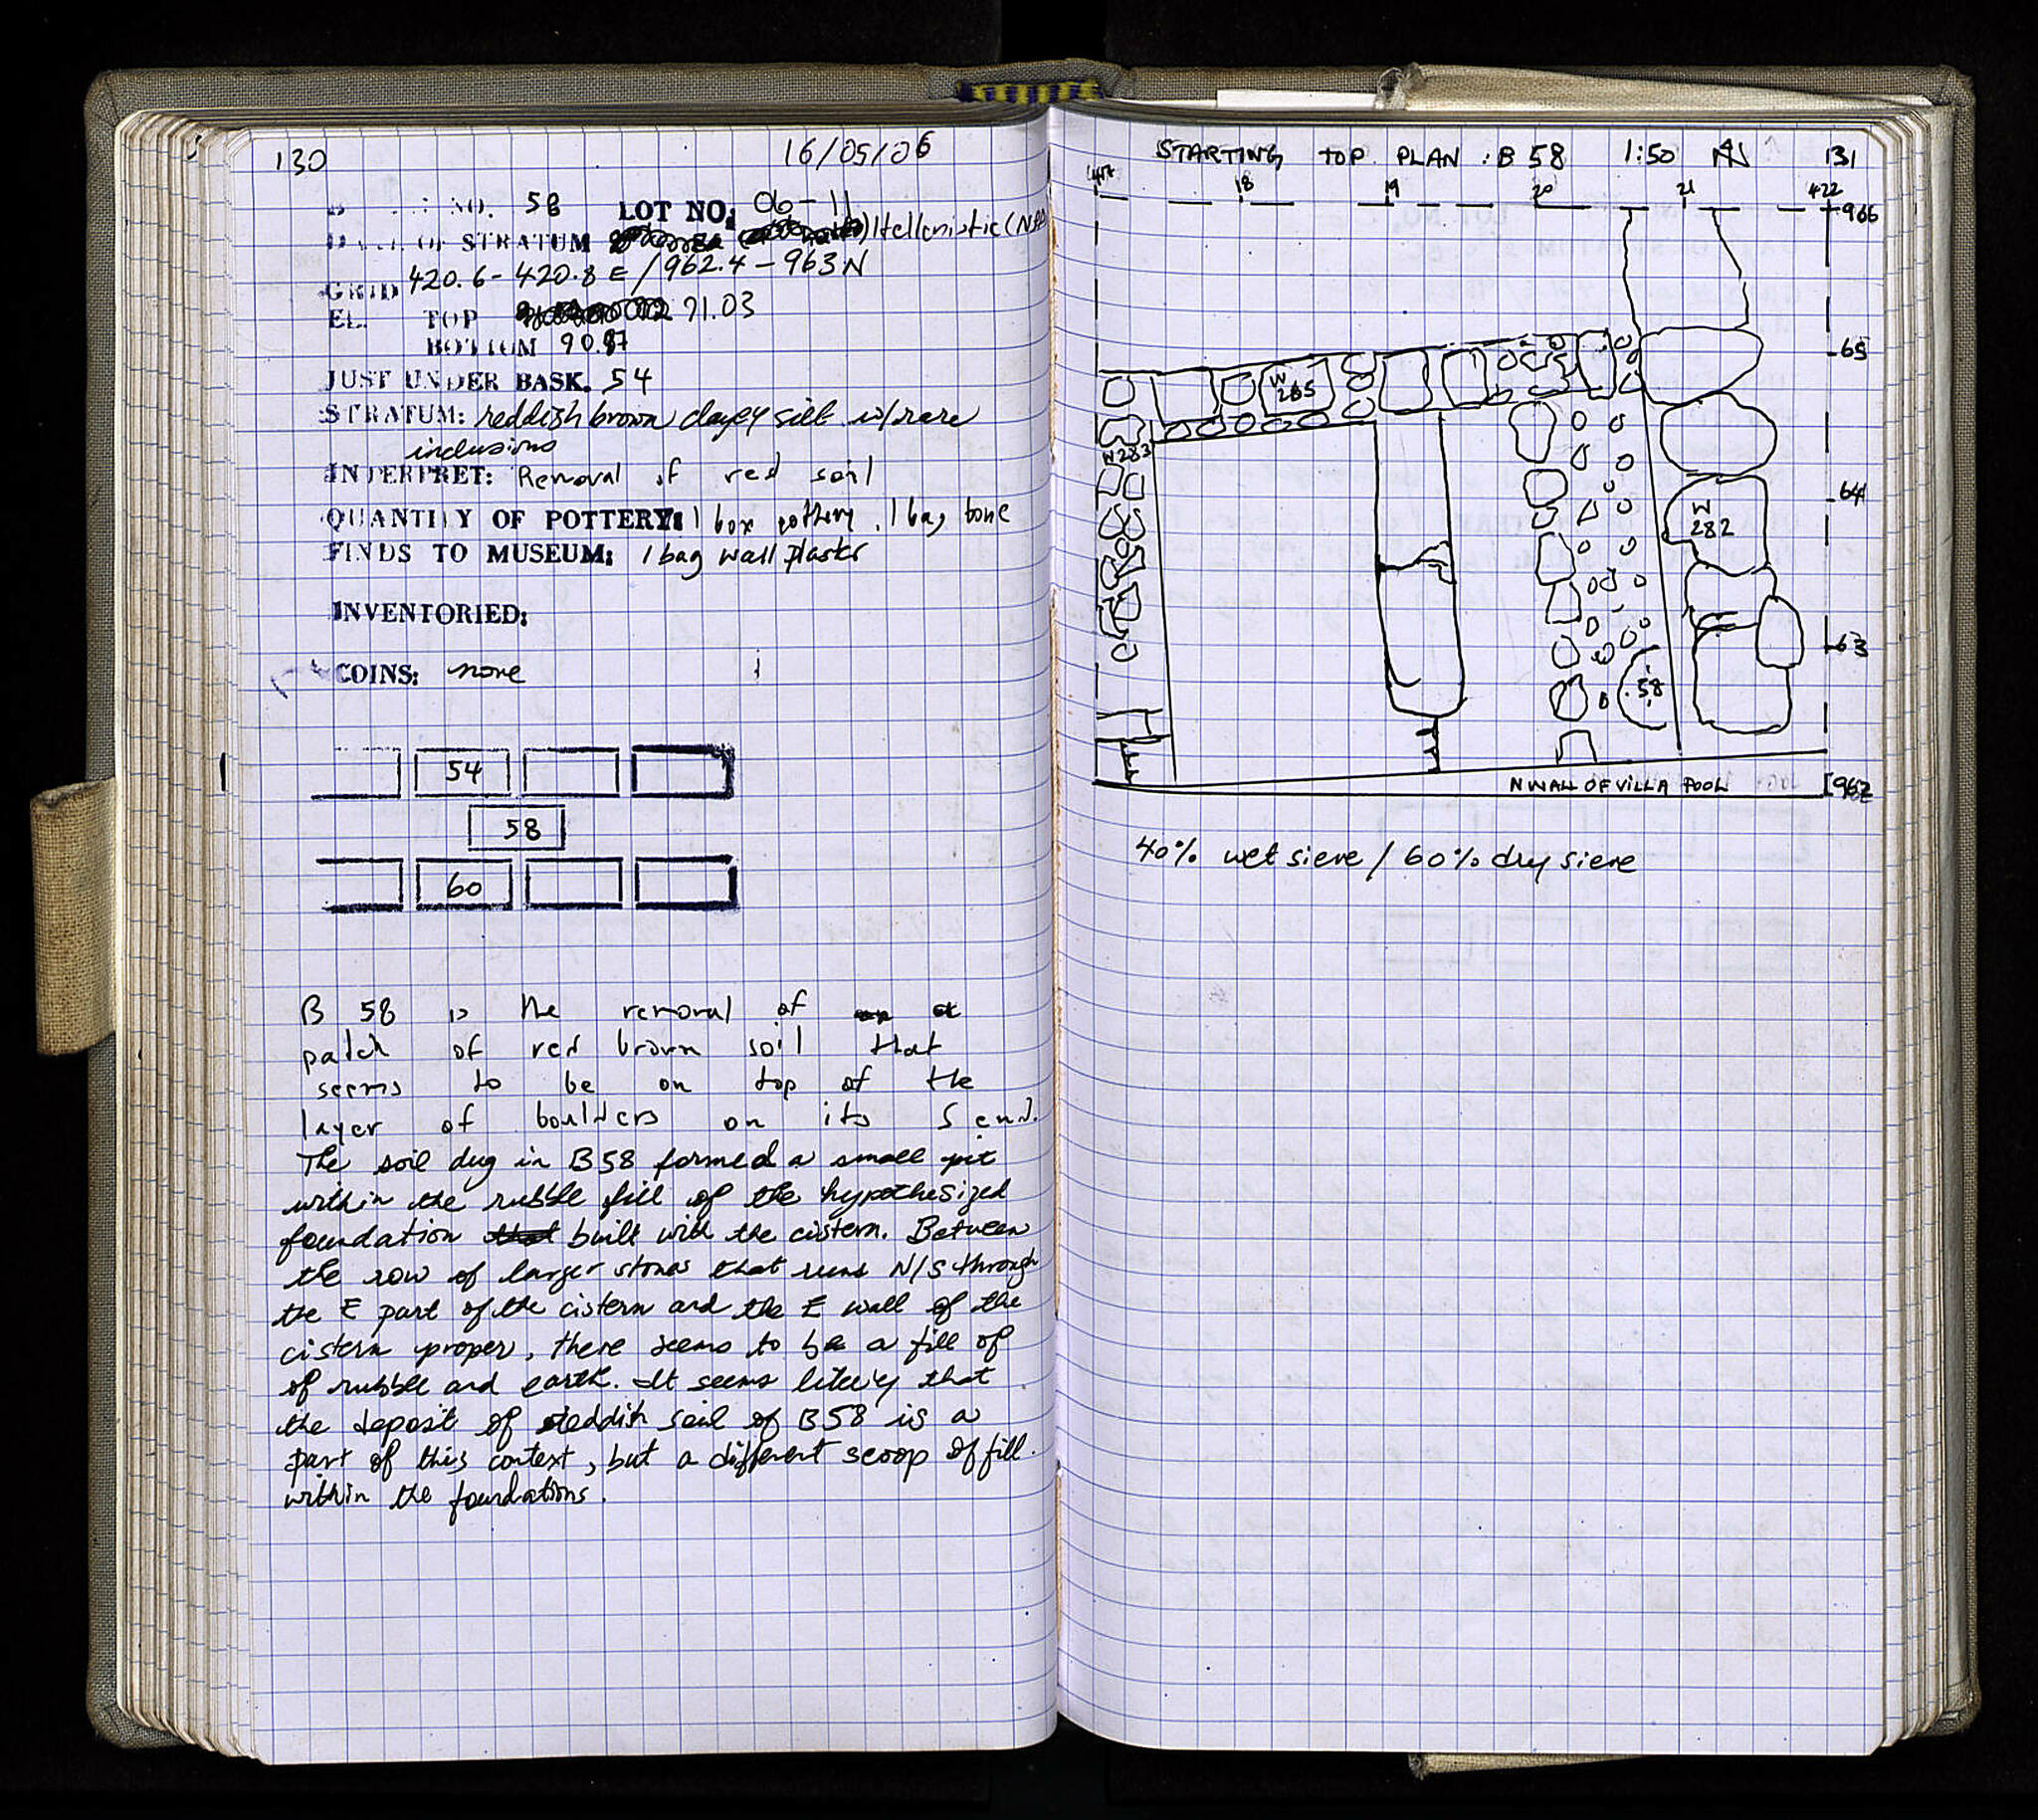 130 16/05/06
NO. 58 LOT NO: 06-11
OF STRATUM Hellenistic
GRID 420.6 - 420.8 E / 962.4 - 963 N
EL. TOP 91.03
BOTTOM 90.87
JUST UNDER BASK. 54
STRATUM: reddish brown clayey silt w/rare
inclusions
INTERPRET: Removal of red soil
QUANTITY OF POTTERY: 1 box pottery, 1 bag bone
FINDS TO MUSEUM: 1 bag wall plaster
INVENTORIED:
COINS: none
54
58
60
B 58 is the removal of a
patch of red brown soil that
seems to be on top of the
layer of boulders on its S end.
The soil dug in B58 formed a small pit
within the rubble fill of the hypothesized
foundation that built with the cistern. Between
the row of larger stones that runs N/S through
the E part of the cistern and the E wall of the
cistern proper, there seems to be a fill of
of rubble and earth. It seems likely that
the deposit of reddish soil of B58 is a
part of this context, but a different scoop of fill
within the foundations.
STARTING TOP PLAN : B 58 1:50 N 131
417 18 19 20 21 422
966
65
W
265
W283
64
W
282
63
58
N WALL OF VILLA POOL 962
40% wet sieve / 60% dry sieve